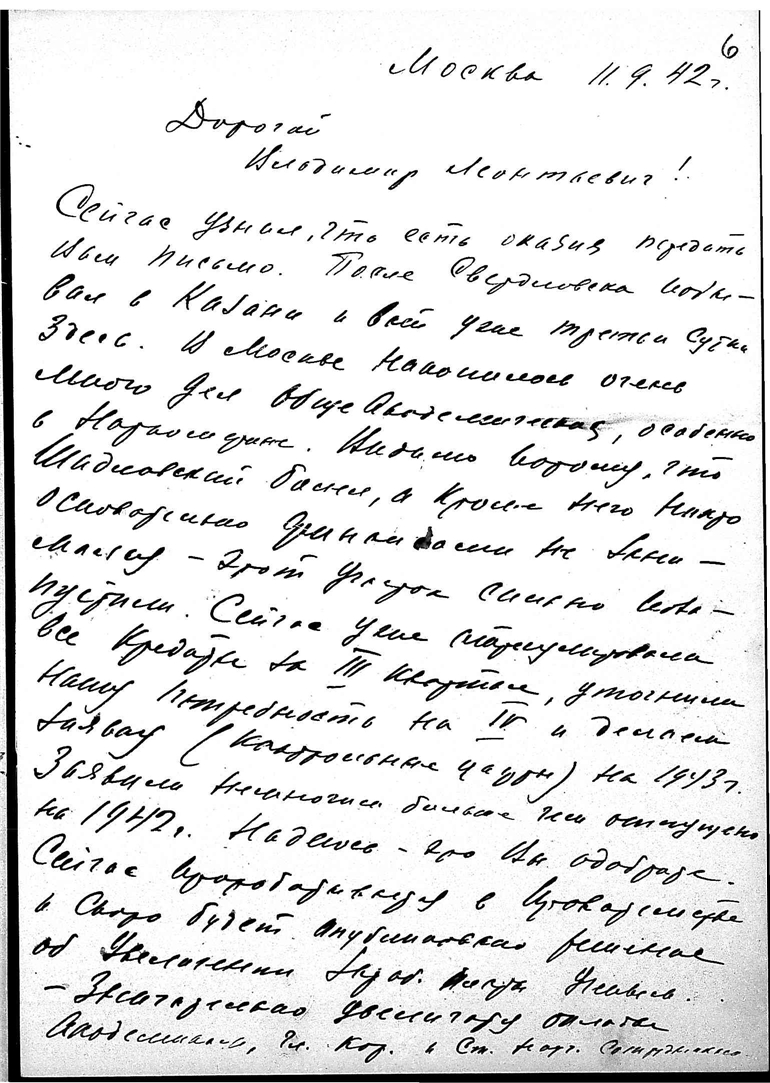 6
Москва 11.9.42 г.
Дорогой
Владимир Леонтьевич!
Сейчас узнал, что есть оказия передать
Вам письмо. После Свердловска побы-
вал в Казани и вот уже третьи сутки
здесь. В Москве накопилось очень
много дел общеакадемических, особенно
в Наркомфине. Видимо потому, что
Шидловский болел, а кроме него никто
основательно финансами не зани-
мался – этот участок сильно
запустили. Сейчас уже
все кредиты за III квартал, уточнили
нашу потребность на IV и делаем
заявку (контрольные цифры) на 1943 г.
Заявили немногим больше чем отпущено
на 1942 г. Надеюсь – это Вы одобрите.
Сейчас прорабатывается в Правительстве
и скоро будет опубликовано решение
об увеличении зараб. платы ученым.
– Значительно увеличат оплату
Академикам, Чл. Кор. и Ст. Науч. Сотрудникам.